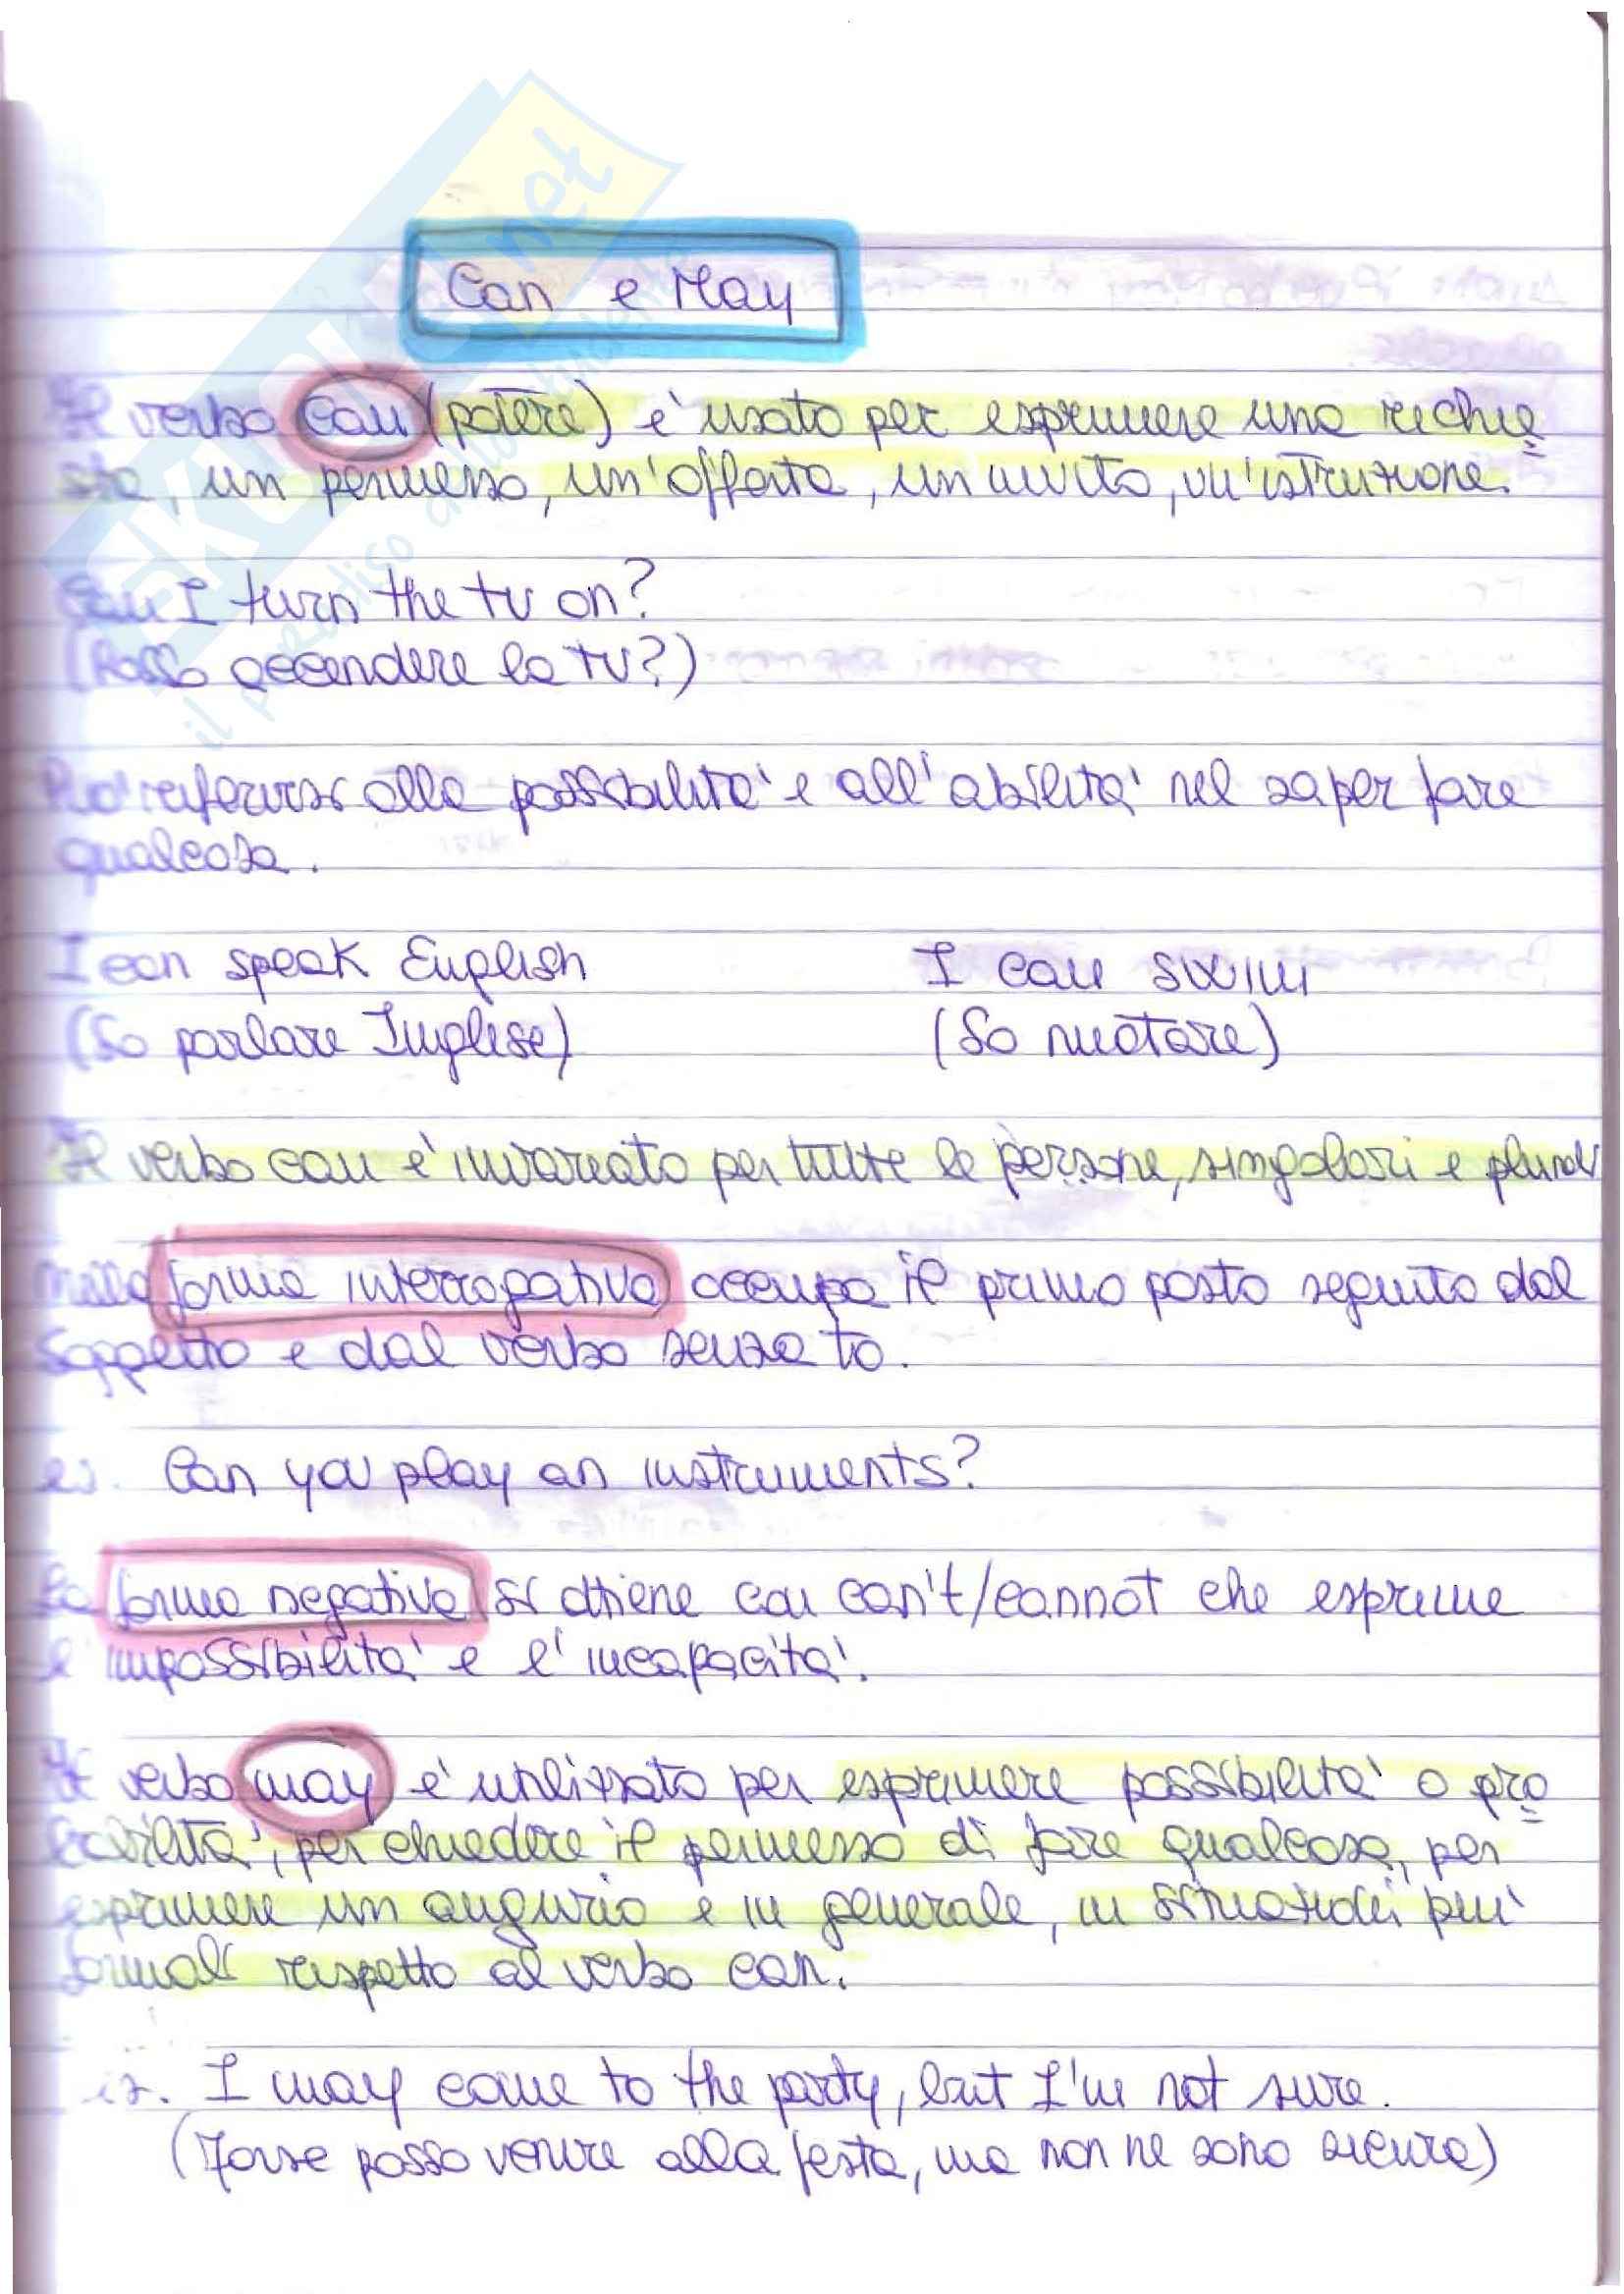 Can e May
Il verbo can (potere) e' usato per esprimere una richie
sta, un permesso, un'offerta, un invito, un'istruzione.
Can I turn the tv on?
(Posso accendere la tv?)
Puo' riferirsi alla possibilita' e all'abilita' nel saper fare
qualcosa.
I can speak English I can swim
(So parlare Inglese) (So nuotare)
Il verbo can e' invariato per tutte le persone, singolari e plurali
Nella forma interrogativa occupa il primo posto seguito dal
soggetto e dal verbo senza to.
es. Can you play an instruments?
La forma negativa si ottiene con can't/cannot che esprime
l'impossibilita' e l'incapacita'.
Il verbo may e' utilizzato per esprimere possibilita' o pro
babilita', per chiedere il permesso di fare qualcosa, per
esprimere un augurio e in generale, in situazioni piu'
formali rispetto al verbo can.
es. I may come to the party, but I'm not sure.
(Forse posso venire alla festa, ma non ne sono sicura)
SKUOLA.net
il paradiso dello studente